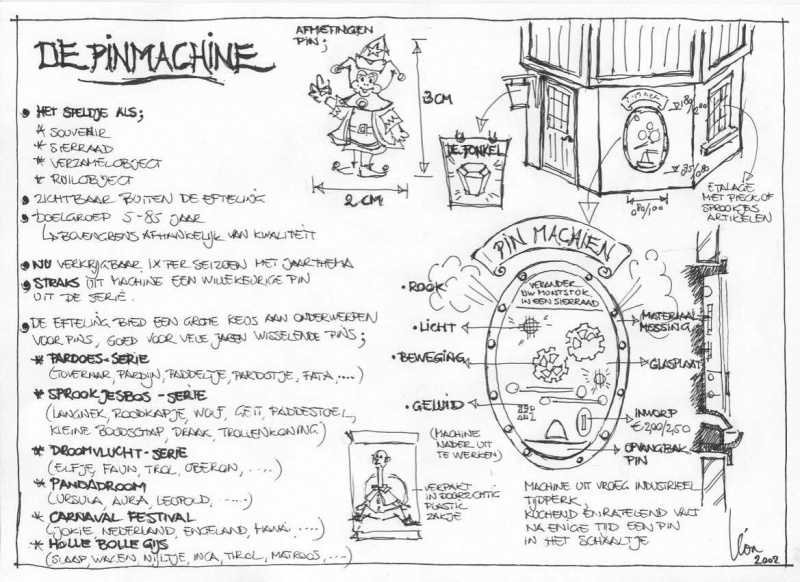 DE PINMACHINE
HET SPELDJE ALS;
* SOUVENIR
* SIERRAAD
* VERZAMELOBJECT
* RUILOBJECT
ZICHTBAAR BUITEN DE EFTELING
DOELGROEP 5-85 JAAR
↳ BOVENGRENS AFHANKELIJK VAN KWALITEIT
NU VERKRIJGBAAR 1X PER SEIZOEN MET JAARTHEMA
STRAKS UIT MACHINE EEN WILLEKEURIGE PIN
UIT DE SERIE.
DE EFTELING BIED EEN GROTE KEUS AAN ONDERWERPEN
VOOR PINS, GOED VOOR VELE JAREN WISSELENDE PINS;
* PARDOES-SERIE
(TOVENAAR, PARDIJN, PADDELTJE, PARDOTJE, FATA,....)
* SPROOKJESBOS-SERIE
(LANGNEK, ROODKAPJE, WOLF, GEIT, PADDESTOEL,
KLEINE BOODSCHAP, DRAAK, TROLLENKONING)
* DROOMVLUCHT-SERIE
(ELFJE, FAUN, TROL, OBERON, ....)
* PANDADROOM
(URSULA, AURA, LEOPOLD, .....)
* CARNAVAL FESTIVAL
(JOKIE, NEDERLAND, ENGELAND, HAWAI, ....)
* HOLLE BOLLE GIJS
(SLAAP, WAGEN, NIJLTJE, INCA, TIROL, MATROOS, ...)
AFMETINGEN
PIN;
3 CM
2 CM
DE FONKEL
PIN MACH
180/200
075/080
080/100
ETALAGE
MET PIECK OF
SPROOKJES
ARTIKELEN
PIN MACHIEN
VERANDER
UW MUNTSTUK
IN EEN SIERRAAD
• ROOK
• LICHT
• BEWEGING
• GELUID
(MACHINE
NADER UIT
TE WERKEN)
MATERIAAL
MESSING
GLASPLAAT
INWORP
€ 2,00/2,50
OPVANGBAK
PIN
VERPAKT
IN DOORZICHTIG
PLASTIC
ZAKJE
MACHINE UIT VROEG INDUSTRIEEL
TIJDPERK,
KOCHEND EN RATELEND VALT
NA ENIGE TIJD EEN PIN
IN HET SCHAALTJE
2002